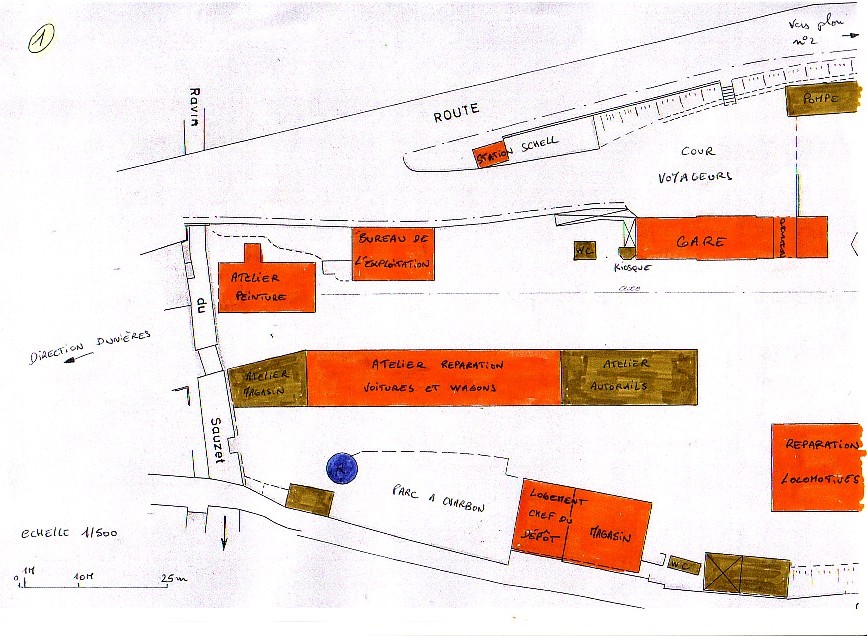 1
vers plan
n°2
Ravin
ROUTE
POMPE
STATION SCHELL
COUR
VOYAGEURS
BUREAU DE
L'EXPLOITATION
GARE
WC
KIOSQUE
ATELIER
PEINTURE
du
DIRECTION DUNIÈRES
ATELIER
MAGASIN
ATELIER REPARATION
VOITURES ET WAGONS
ATELIER
AUTORAILS
Sauzet
REPARATION
LOCOMOTIVES
PARC A CHARBON
LOGEMENT
CHEF DU
DÉPÔT
MAGASIN
WC
ECHELLE 1/500
0 1M 10M 25m